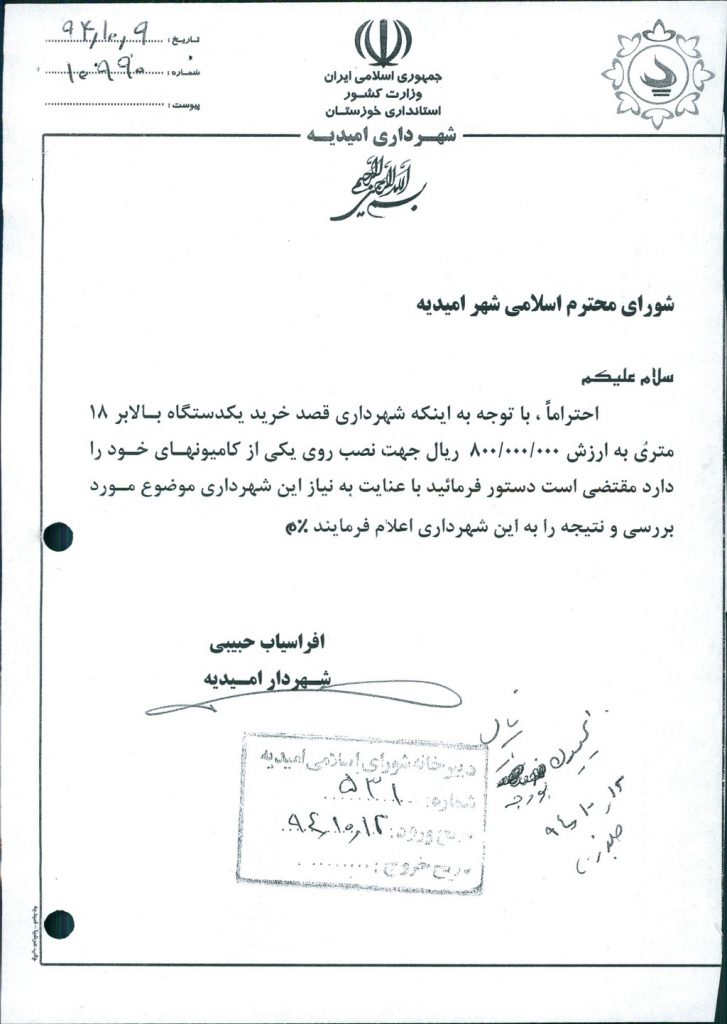 جمهوری اسلامی ایران
وزارت کشور
استانداری خوزستان
شهرداری امیدیه
تاریخ : ۹۴٫۱۰٫۹
شماره : ۱۰۹۹۰
پیوست :
بسم الله الرحمن الرحیم
شورای محترم اسلامی شهر امیدیه
سلام علیکم
احتراماً ، با توجه به اینکه شهرداری قصد خرید یکدستگاه بالابر ۱۸
متری به ارزش ۸۰۰/۰۰۰/۰۰۰ ریال جهت نصب روی یکی از کامیونهای خود را
دارد مقتضی است دستور فرمائید با عنایت به نیاز این شهرداری موضوع مورد
بررسی و نتیجه را به این شهرداری اعلام فرمایند ٪م
افراسیاب حبیبی
شهردار امیدیه
دبیرخانه شورای اسلامی امیدیه
شماره: ۵۳۱
ورود: ۹۴٫۱۰٫۱۲
خروج :
کمیسیون
بودجه